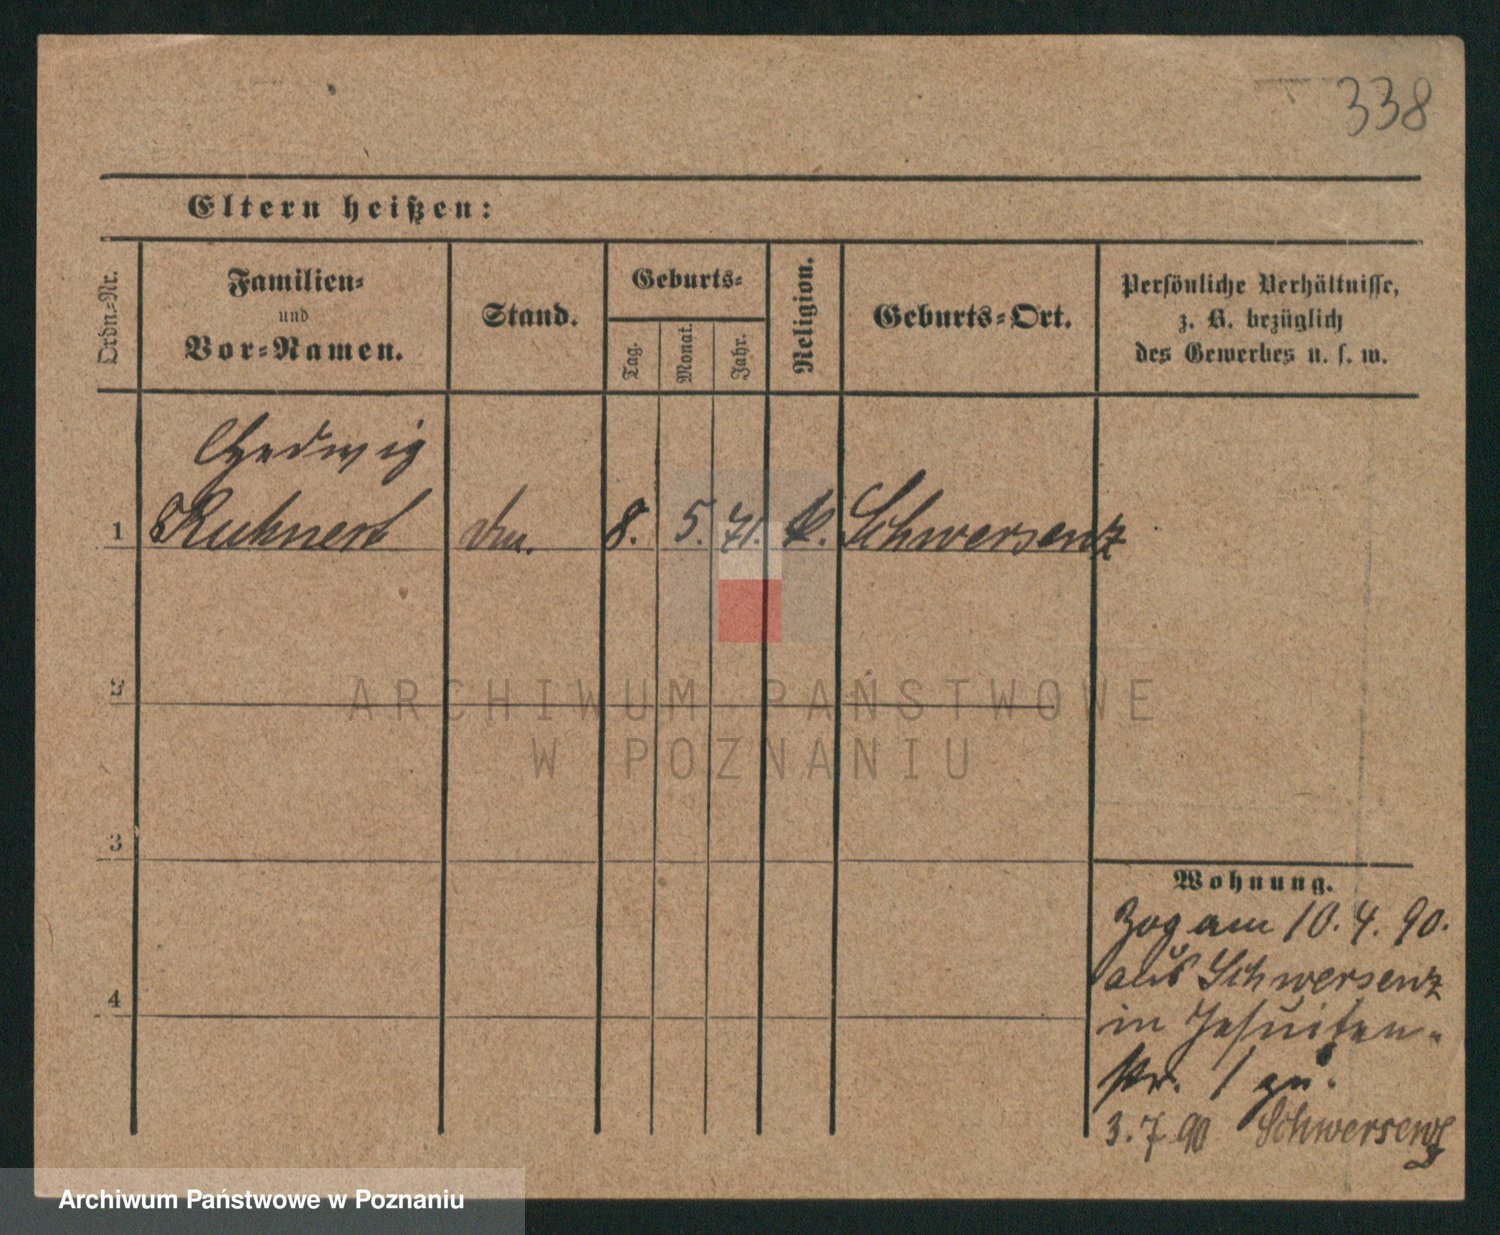 338
Eltern heißen:
Ordn.-Nr.
Familien-
und
Vor-Namen.
Stand.
Geburts-
Tag.
Monat.
Jahr.
Religion.
Geburts-Ort.
Persönliche Verhältnisse,
z. B. bezüglich
des Gewerbes u. s. w.
Hedwig
1 Kuhnert 8. 5. 71. Schwersenz
2
3
4
Wohnung.
Zog am 10. 4. 90.
aus Schwersenz
in Jesuiten-
str. 1 zu.
3. 7. 90 Schwersenz
ARCHIWUM PAŃSTWOWE
W POZNANIU
Archiwum Państwowe w Poznaniu